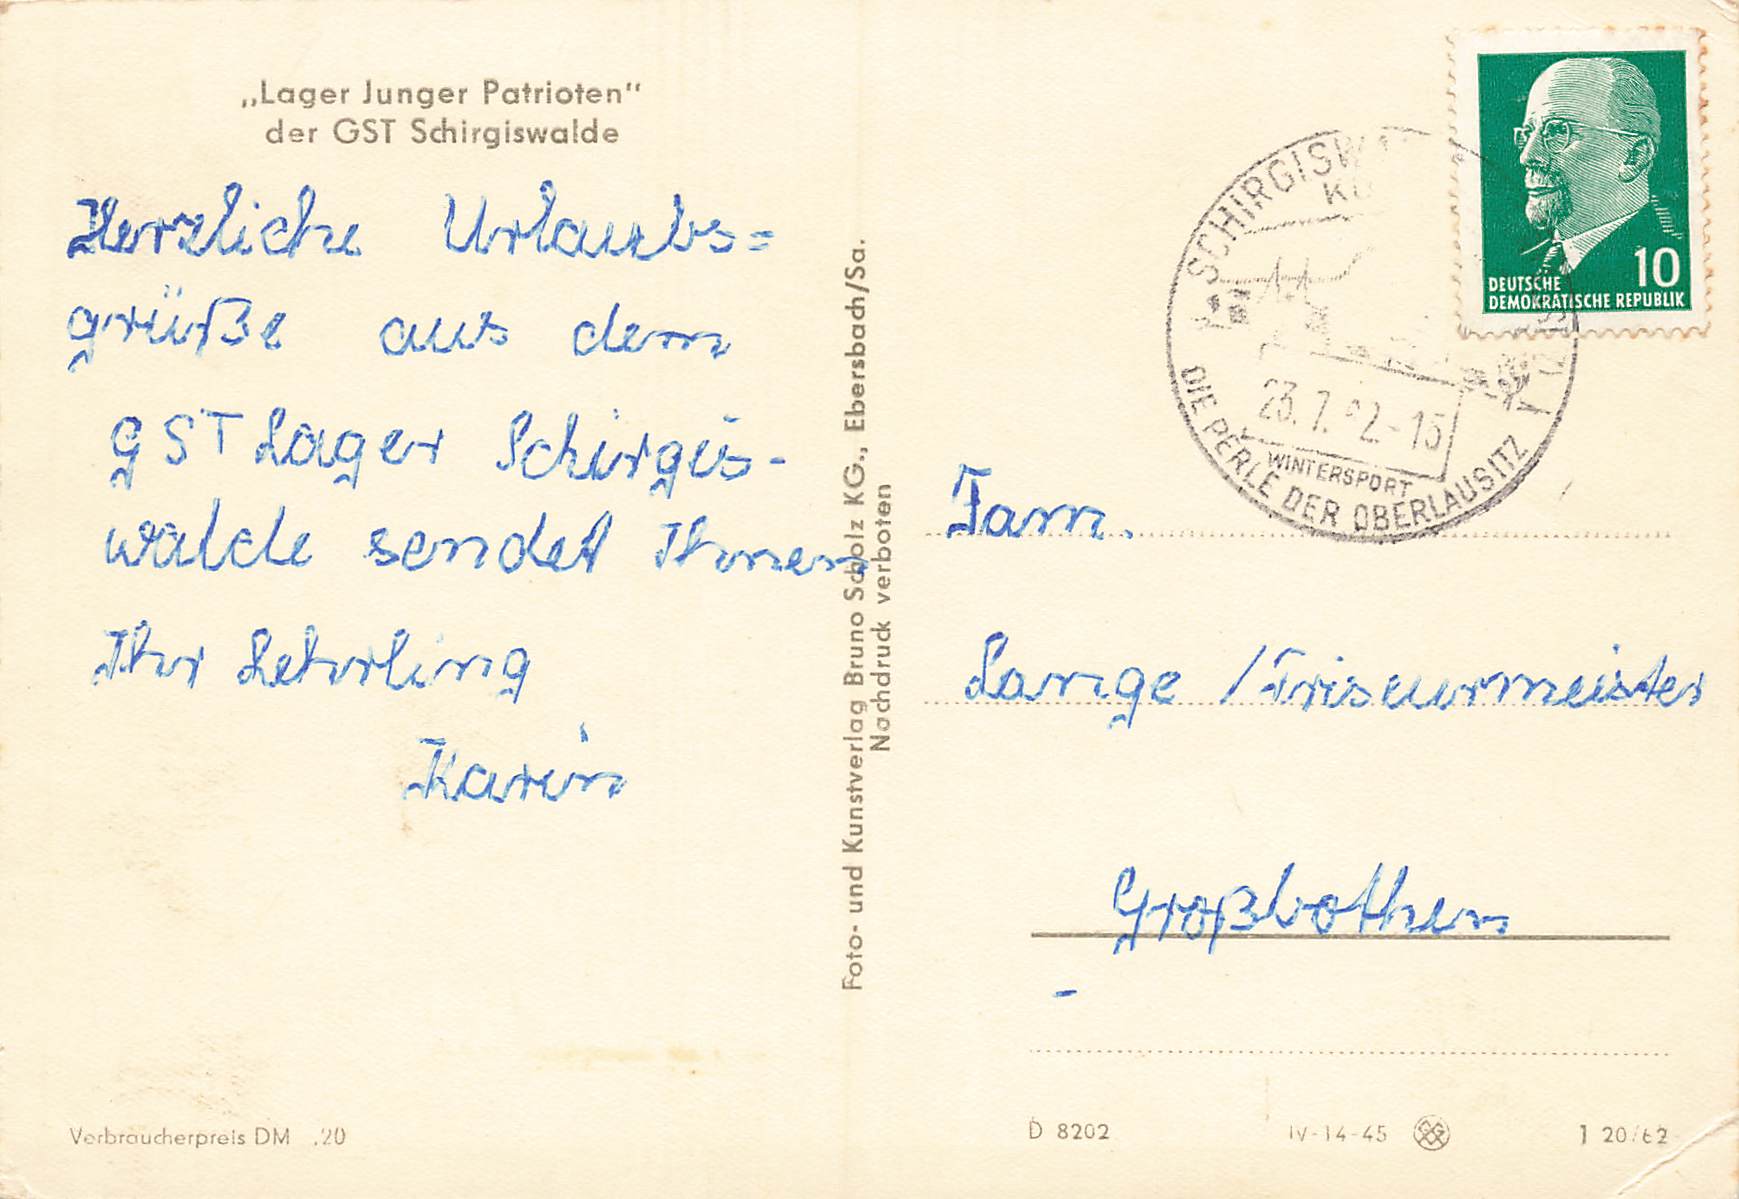 „Lager Junger Patrioten“
der GST Schirgiswalde
Herzliche Urlaubs=
grüße aus dem
GST Lager Schirgis-
walde sendet Ihnen
Ihr Lehrling
Karin
Verbraucherpreis DM .20
Foto- und Kunstverlag Bruno Scholz KG., Ebersbach/Sa.
Nachdruck verboten
DEUTSCHE
DEMOKRATISCHE REPUBLIK
10
23.7. 2-15
WINTERSPORT
DIE PERLE DER OBERLAUSITZ
Fam.
Lange / Friseurmeister
Großbothen
D 8202 IV-14-45 1 20/62